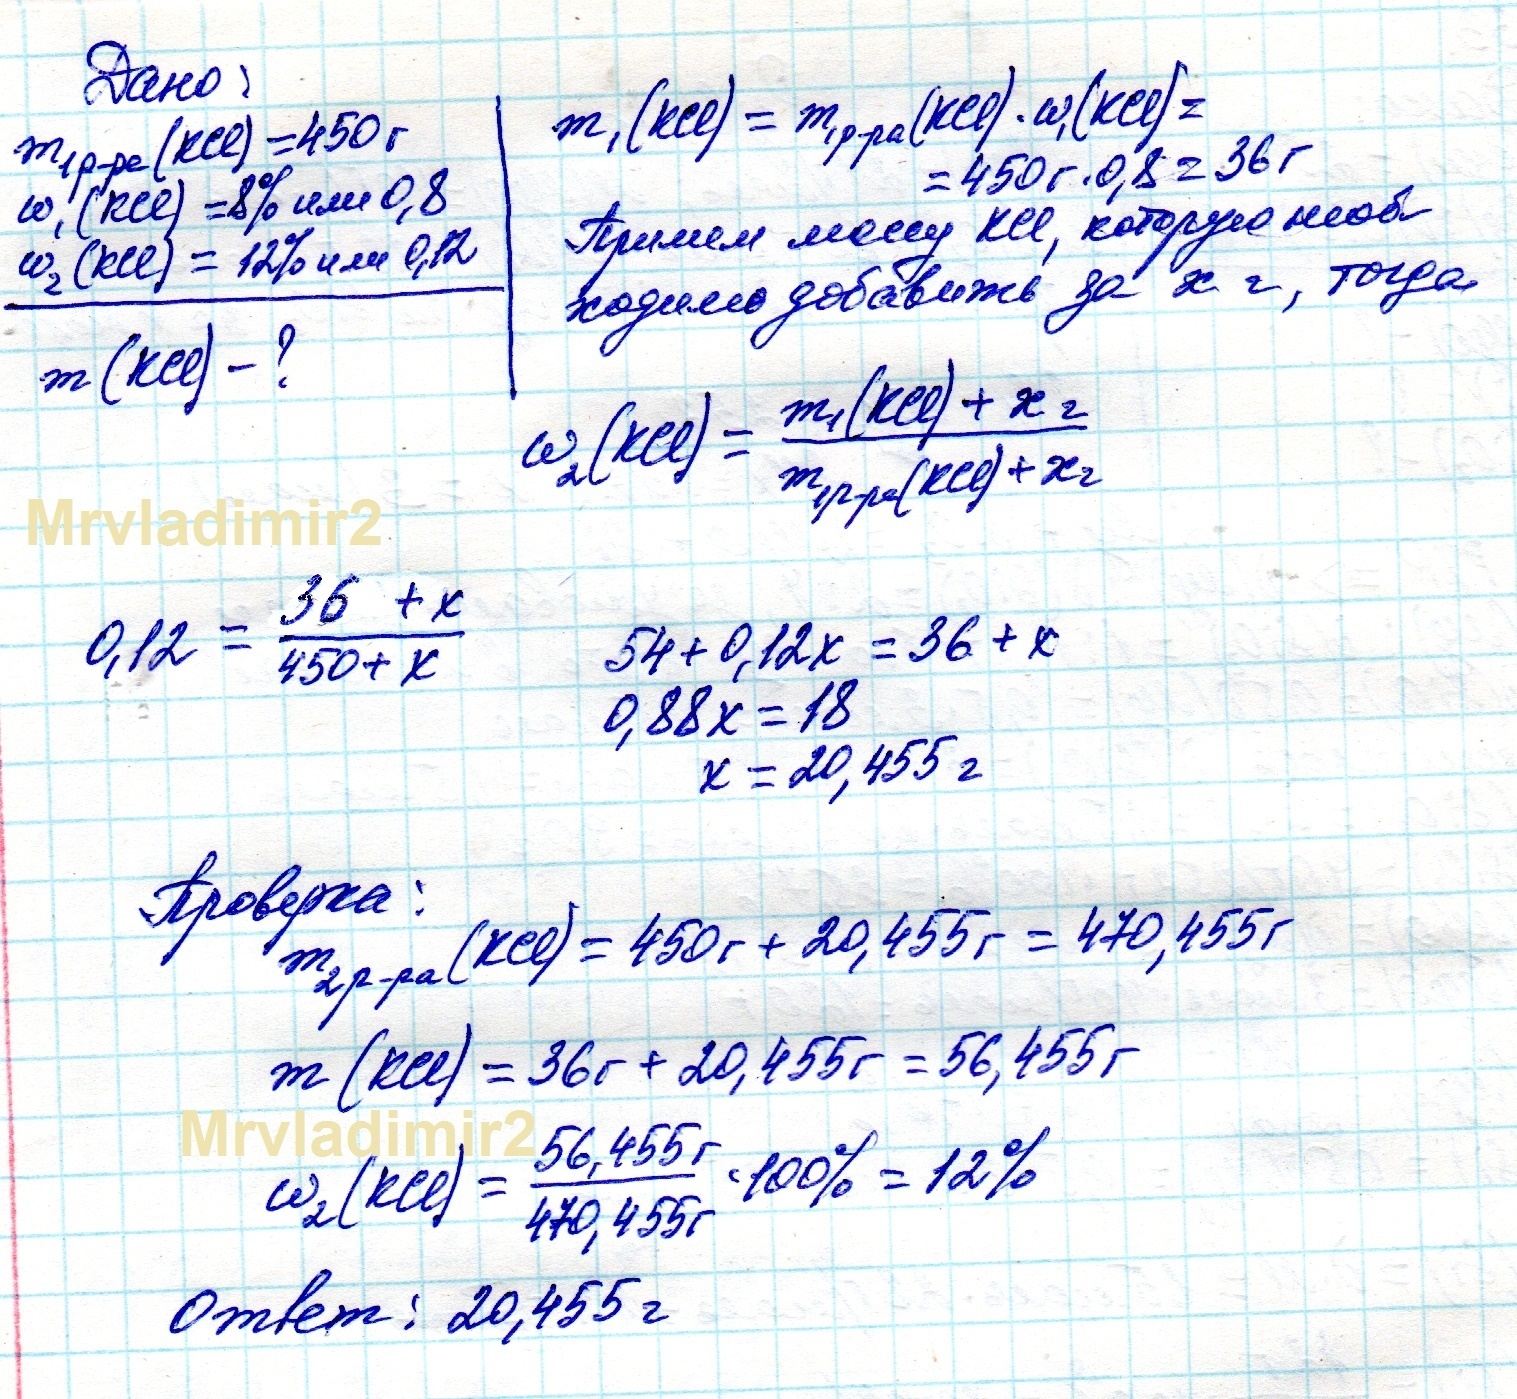 Дано:
m₁р-ра(KCl) = 450г
ω₁(KCl) = 8% или 0,8
ω₂(KCl) = 12% или 0,12
m(KCl) - ?
m₁(KCl) = m₁р-ра(KCl) · ω₁(KCl) =
= 450г · 0,8 = 36г
Примем массу KCl, которую необ
ходимо добавить за x г, тогда
ω₂(KCl) = (m₁(KCl) + x г) / (m₁р-ра(KCl) + x г)
Mrvladimir2
0,12 = (36 + x) / (450 + x)
54 + 0,12x = 36 + x
0,88x = 18
x = 20,455 г
Проверка:
m₂р-ра(KCl) = 450г + 20,455г = 470,455г
m(KCl) = 36г + 20,455г = 56,455г
Mrvladimir2
ω₂(KCl) = 56,455г / 470,455г · 100% = 12%
Ответ: 20,455 г